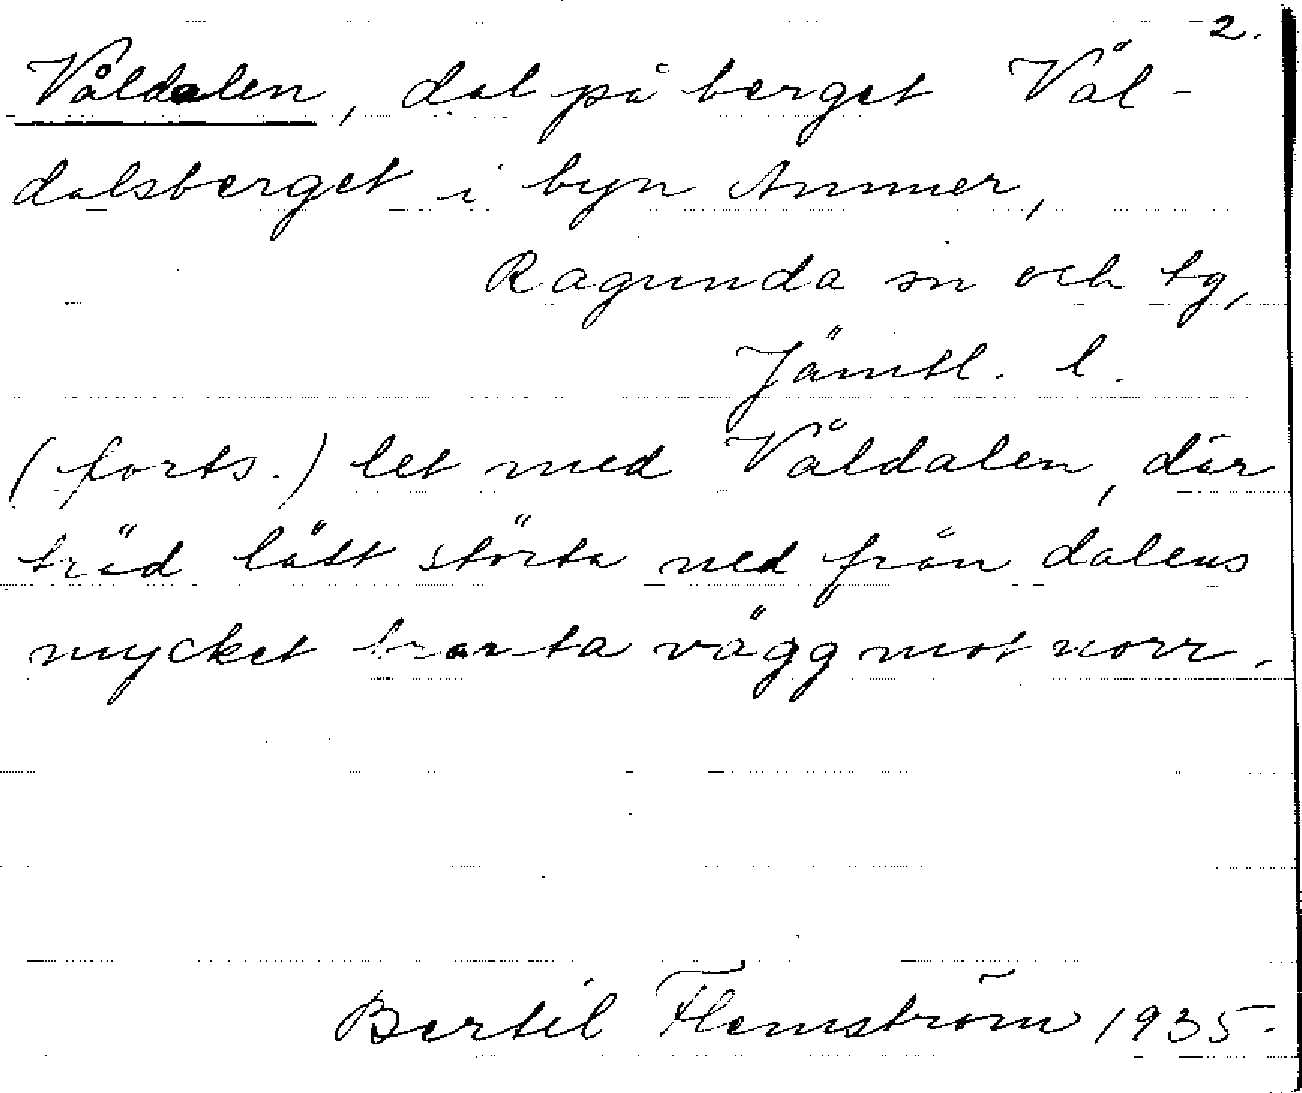 2.
Våldalen, dal på berget Vål-
dalsberget i byn Ammer,
Ragunda sn och tg,
Jämtl. l.
(forts.) let med Våldalen, där
träd lätt störta ned från dalens
mycket branta vägg mot norr.
Bertil Flemström 1935.